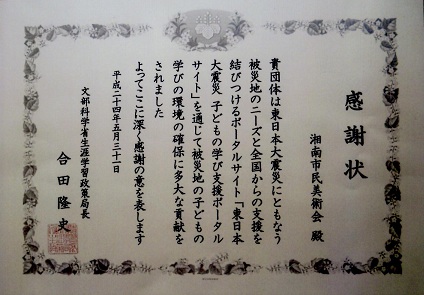 感謝状
湘南市民美術会 殿
貴団体は東日本大震災にともなう
被災地のニーズと全国からの支援を
結びつけるポータルサイト「東日本
大震災 子どもの学び支援ポータル
サイト」を通じて被災地の子どもの
学びの環境の確保に多大な貢献を
されました
よってここに深く感謝の意を表します
平成二十四年五月三十一日
文部科学省生涯学習政策局長
合田隆史